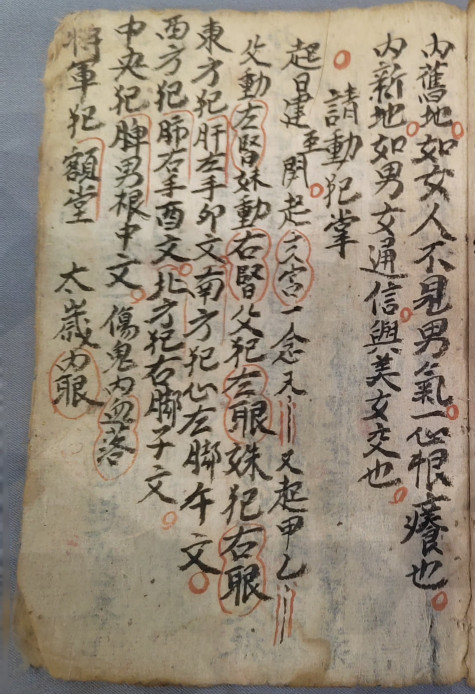 內舊地如女人不見男氣一心恨癢也
內新地如男女通信與美女交也
請動犯掌
起日建至閉起宮一念天又起甲乙
父動左腎妹動右腎父犯左眼妹犯右眼
東方犯肝左手卯文南方犯心左脚午文
西方犯肺右手酉文北方犯右脚子文
中央犯脾男根中文傷鬼內血落
將軍犯額堂太歲內眼